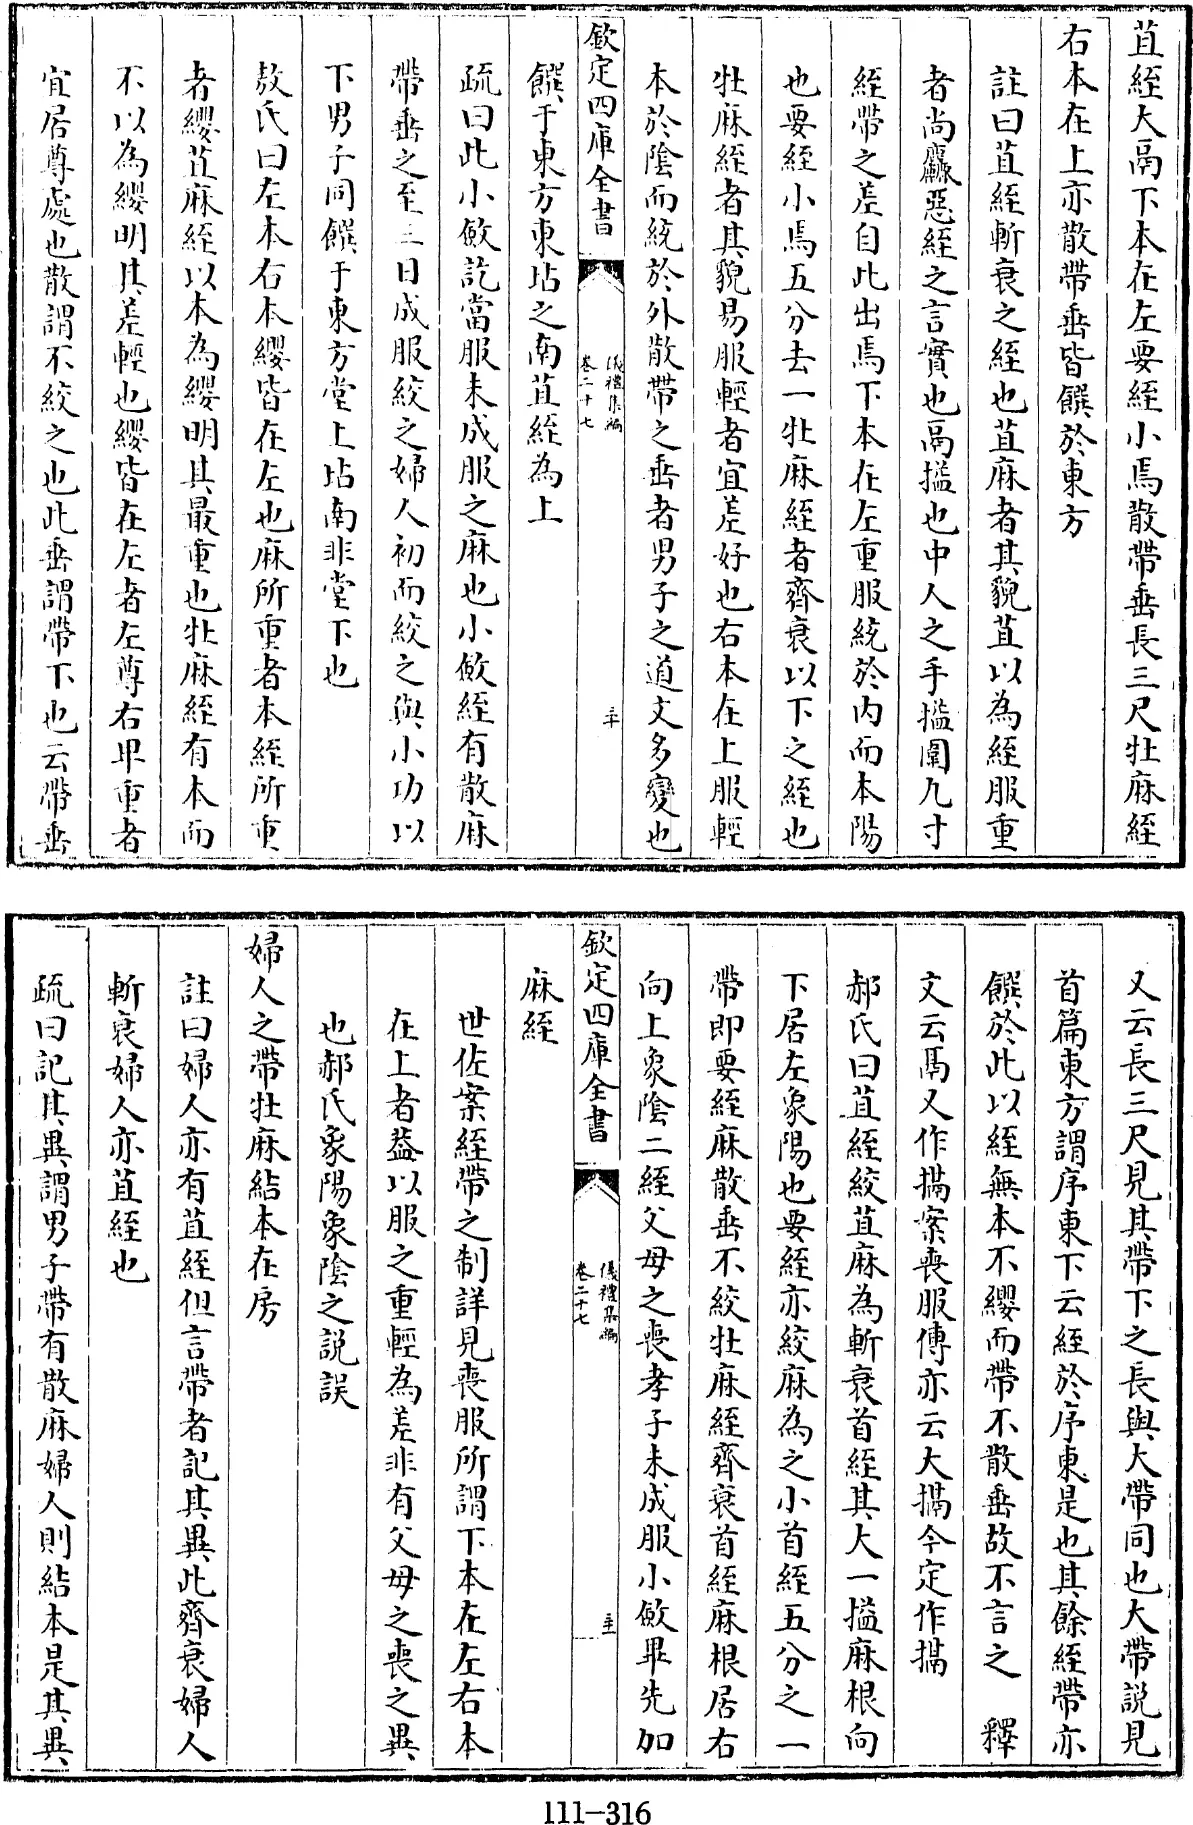 苴絰大鬲下本在左要絰小焉散帶垂長三尺牡麻絰
右本在上亦散帶垂皆饌於東方
註曰苴絰斬衰之絰也苴麻者其貌苴以為絰服重
者尚麤惡絰之言實也鬲搤也中人之手搤圍九寸
絰帶之差自此出焉下本在左重服統於内而本陽
也要絰小焉五分去一牡麻絰者齊衰以下之絰也
牡麻絰者其貌易服輕者宜差好也右本在上服輕
本於陰而統於外散帶之垂者男子之道文多變也
欽定四庫全書
儀禮集編
卷二十七
三十
饌于東方東坫之南苴絰為上
疏曰此小斂訖當服未成服之麻也小斂絰有散麻
帶垂之至三日成服絞之婦人初而絞之與小功以
下男子同饌于東方堂上坫南非堂下也
敖氏曰左本右本纓皆在左也麻所重者本絰所重
者纓苴麻絰以本為纓明其最重也牡麻絰有本而
不以為纓明其差輕也纓皆在左者左尊右卑重者
宜居尊處也散謂不絞之也此垂謂帶下也云帶垂
又云長三尺見其帶下之長與大帶同也大帶說見
首篇東方謂序東下云絰於序東是也其餘絰帶亦
饌於此以絰無本不纓而帶不散垂故不言之　釋
文云鬲又作搹案喪服傳亦云大搹今定作搹
郝氏曰苴絰絞苴麻為斬衰首絰其大一搤麻根向
下居左象陽也要絰亦絞麻為之小首絰五分之一
帶即要絰麻散垂不絞牡麻絰齊衰首絰麻根居右
向上象陰二絰父母之喪孝子未成服小斂畢先加
欽定四庫全書
儀禮集編
卷二十七
三十一
麻絰
世佐案絰帶之制詳見喪服所謂下本在左右本
在上者葢以服之重輕為差非有父母之喪之異
也郝氏象陽象陰之說誤
婦人之帶牡麻結本在房
註曰婦人亦有苴絰但言帶者記其異此齊衰婦人
斬衰婦人亦苴絰也
疏曰記其異謂男子帶有散麻婦人則結本是其異
111-316